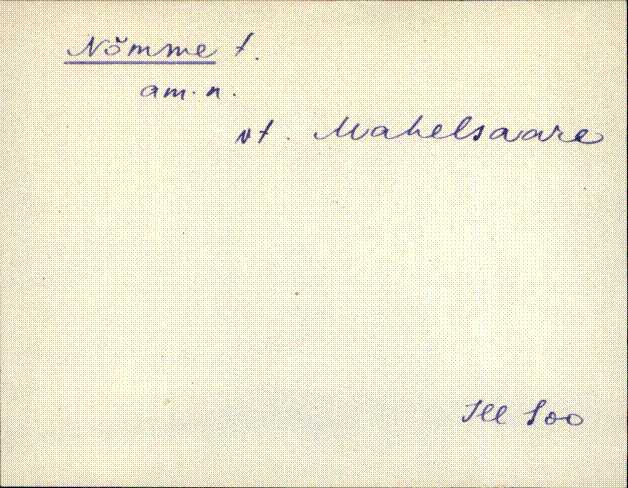 Nõmme t.
am. n.
vt. Mahelsaare
Ill Soo